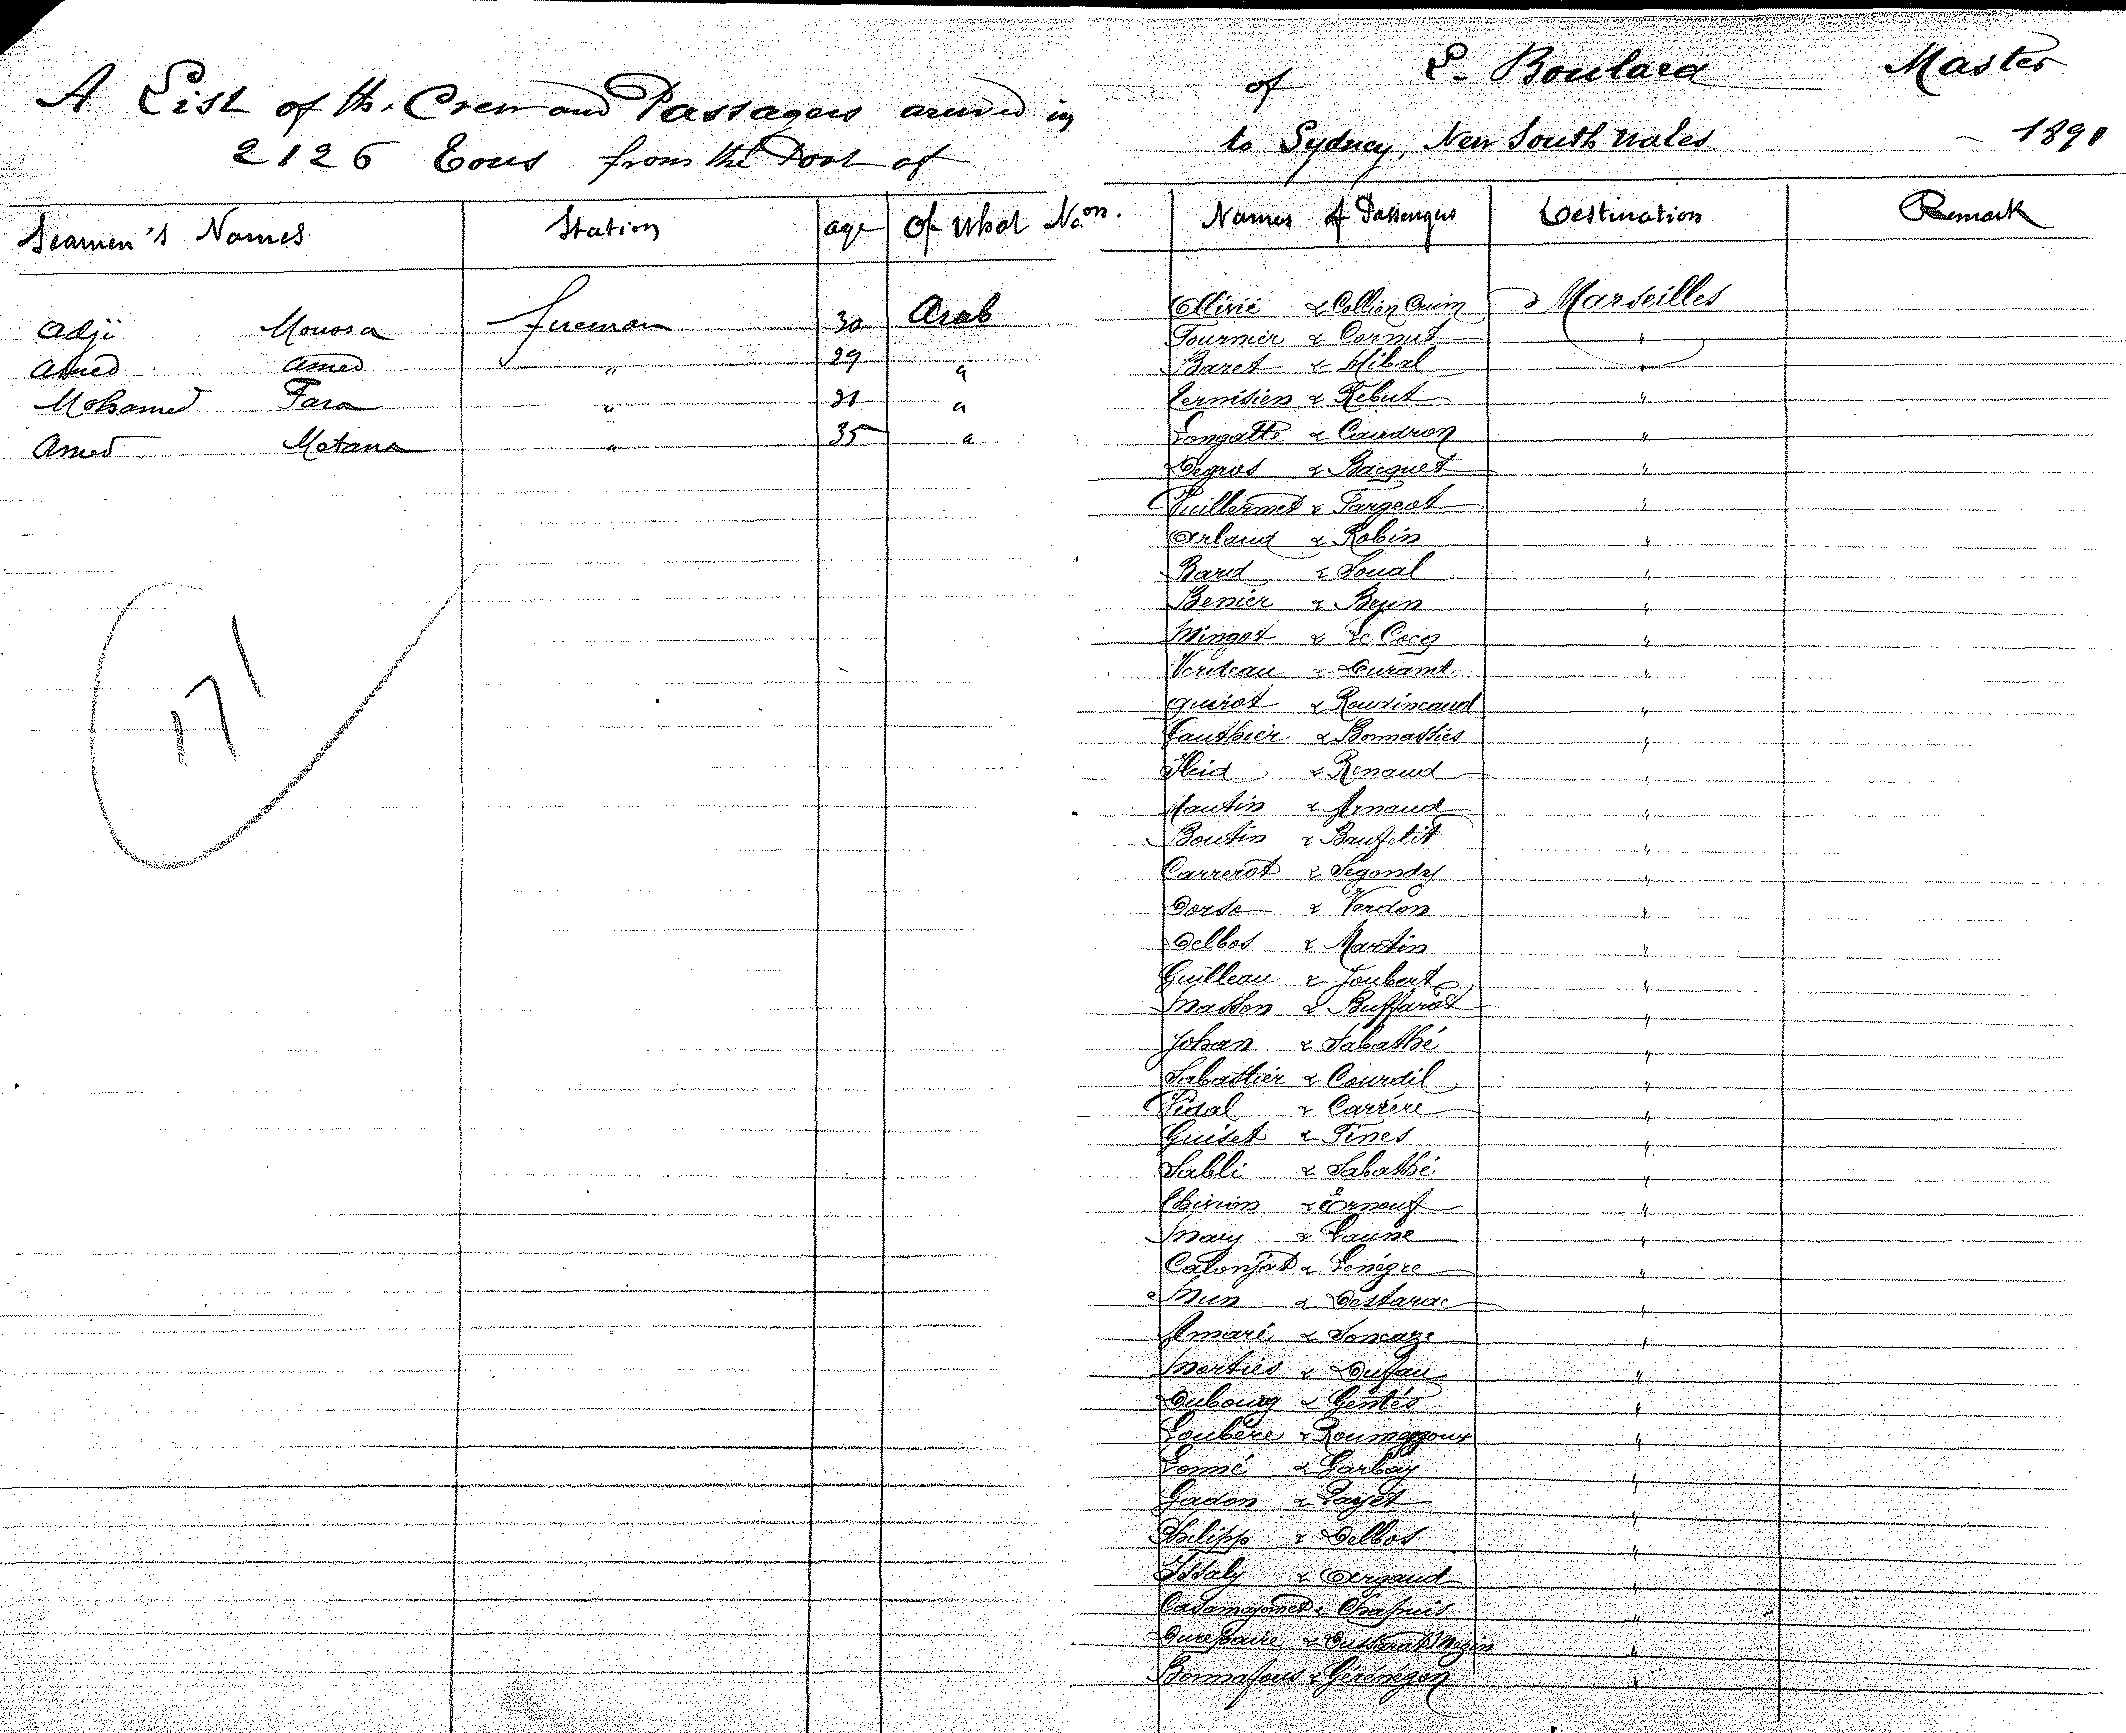 A List of the Crew and Passagers arrived in
2126 Tons from the Port of
of L. Boulard Master
to Sydney, New South Wales 1890
Seamen's Names Station age Of what Na.on.
Adji Moussa fireman 30 Arab
Amed Amed " 29 "
Mohamed Fara " 31 "
Amed Matana " 35 "
171
Names of Passengers Destination Remark
Ollivié & Collin Marseilles
Fournier & Cornut "
Baret & Hibal "
Vernisien & Rebut "
Longatte & Caudron "
Degros & Bacquet "
Vuillermet & Fargeot "
Arlaud & Robin "
Bard & Soual "
Benier & Beyen "
Mingot & Le Cocq "
Verdeau & Durand "
Quirot & Roudincaud "
Gauthier & Bonnassies "
Heid & Renaud "
Hautin & Arnaud "
Boutin & Boufelit "
Carrerot & Segondy "
Dorse & Verdon "
Delbos & Martin "
Guilleau & Joubert "
Masson & Buffarot "
Johan & Sabathé "
Sabattier & Courdil "
Vidal & Carrère "
Guiset & Fines "
Sabli & Sabathé "
Chirion & Erneuf "
Mary & Laune "
Calonfat & Lenègre "
Mun & Destarac "
Amaré & Soucaze "
Merties & Dufau "
Dubourg & Gentès "
Loubère & Roumegoux "
Lonné & Garbay "
Gadon & Payet "
Philipp & Delbos "
Issaly & Dergaud "
& Chapuis "
Durepaire & "
Bonnafous & "